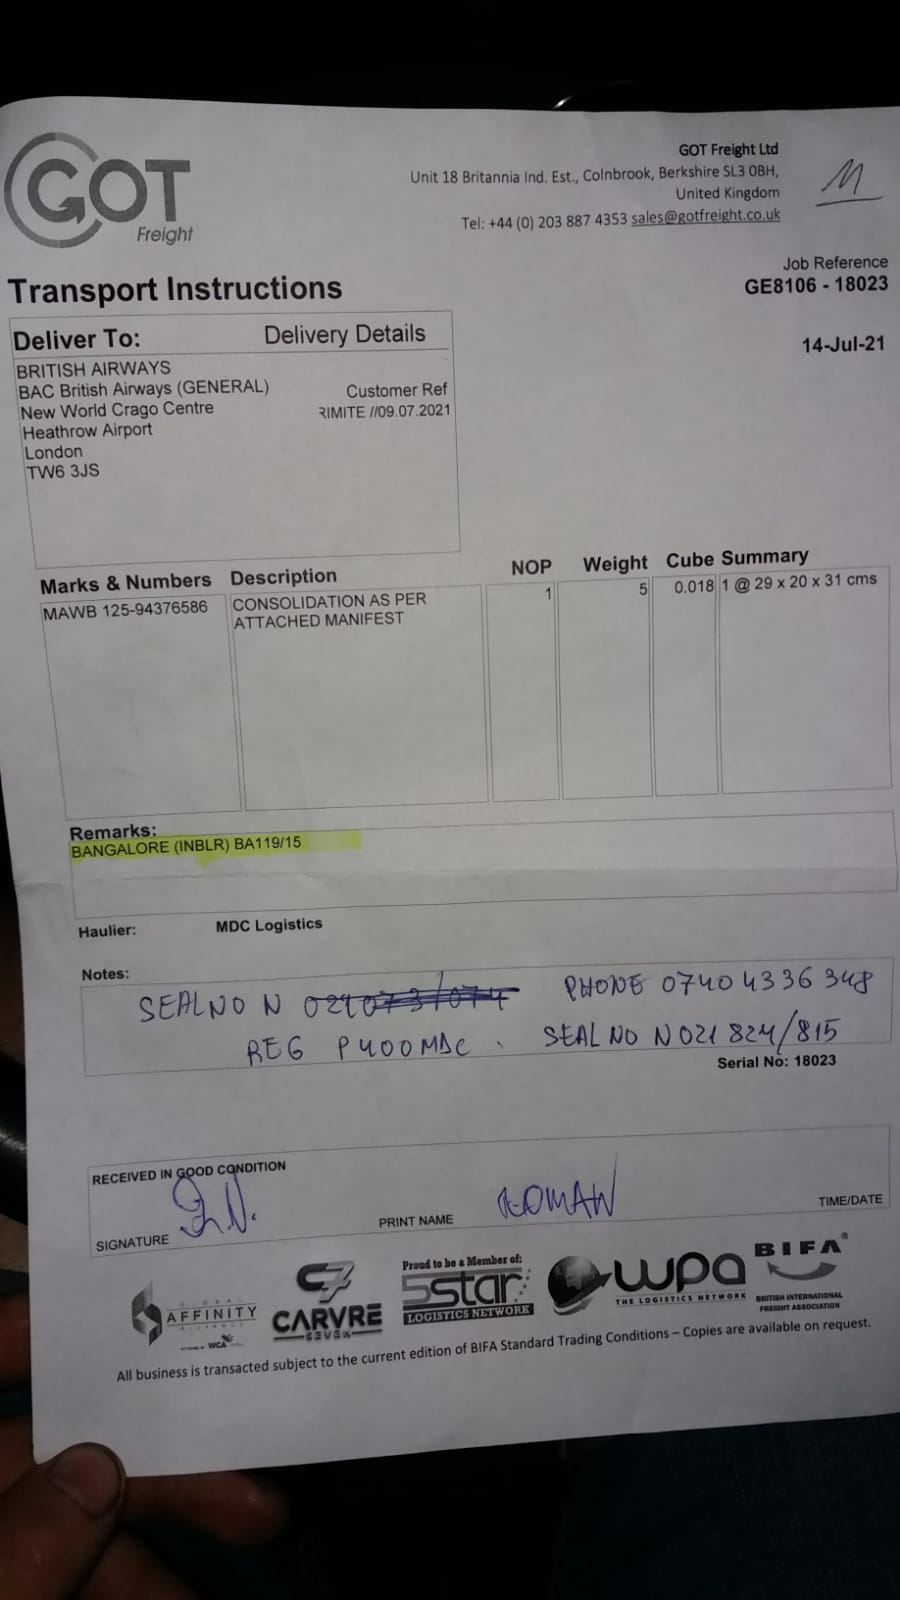 GOT
Freight
GOT Freight Ltd
Unit 18 Britannia Ind. Est., Colnbrook, Berkshire SL3 0BH,
United Kingdom
Tel: +44 (0) 203 887 4353 sales@gotfreight.co.uk
M
Transport Instructions
Job Reference
GE8106 - 18023
14-Jul-21
Deliver To: Delivery Details
BRITISH AIRWAYS
BAC British Airways (GENERAL)
New World Crago Centre
Heathrow Airport
London
TW6 3JS
Customer Ref
RIMITE //09.07.2021
Marks & Numbers Description NOP Weight Cube Summary
MAWB 125-94376586 CONSOLIDATION AS PER 1 5 0.018 1 @ 29 x 20 x 31 cms
ATTACHED MANIFEST
Remarks:
BANGALORE (INBLR) BA119/15
Haulier: MDC Logistics
Notes:
SEAL NO N PHONE 07404336348
REG P400MDC . SEAL NO N021 824/815
Serial No: 18023
RECEIVED IN GOOD CONDITION
SIGNATURE PRINT NAME ROMAN TIME/DATE
AFFINITY
WCA
C7
CARVRE
SEVEN
Proud to be a Member of:
5star
LOGISTICS NETWORK
wpa
THE LOGISTICS NETWORK
BIFA
BRITISH INTERNATIONAL
FREIGHT ASSOCIATION
All business is transacted subject to the current edition of BIFA Standard Trading Conditions – Copies are available on request.